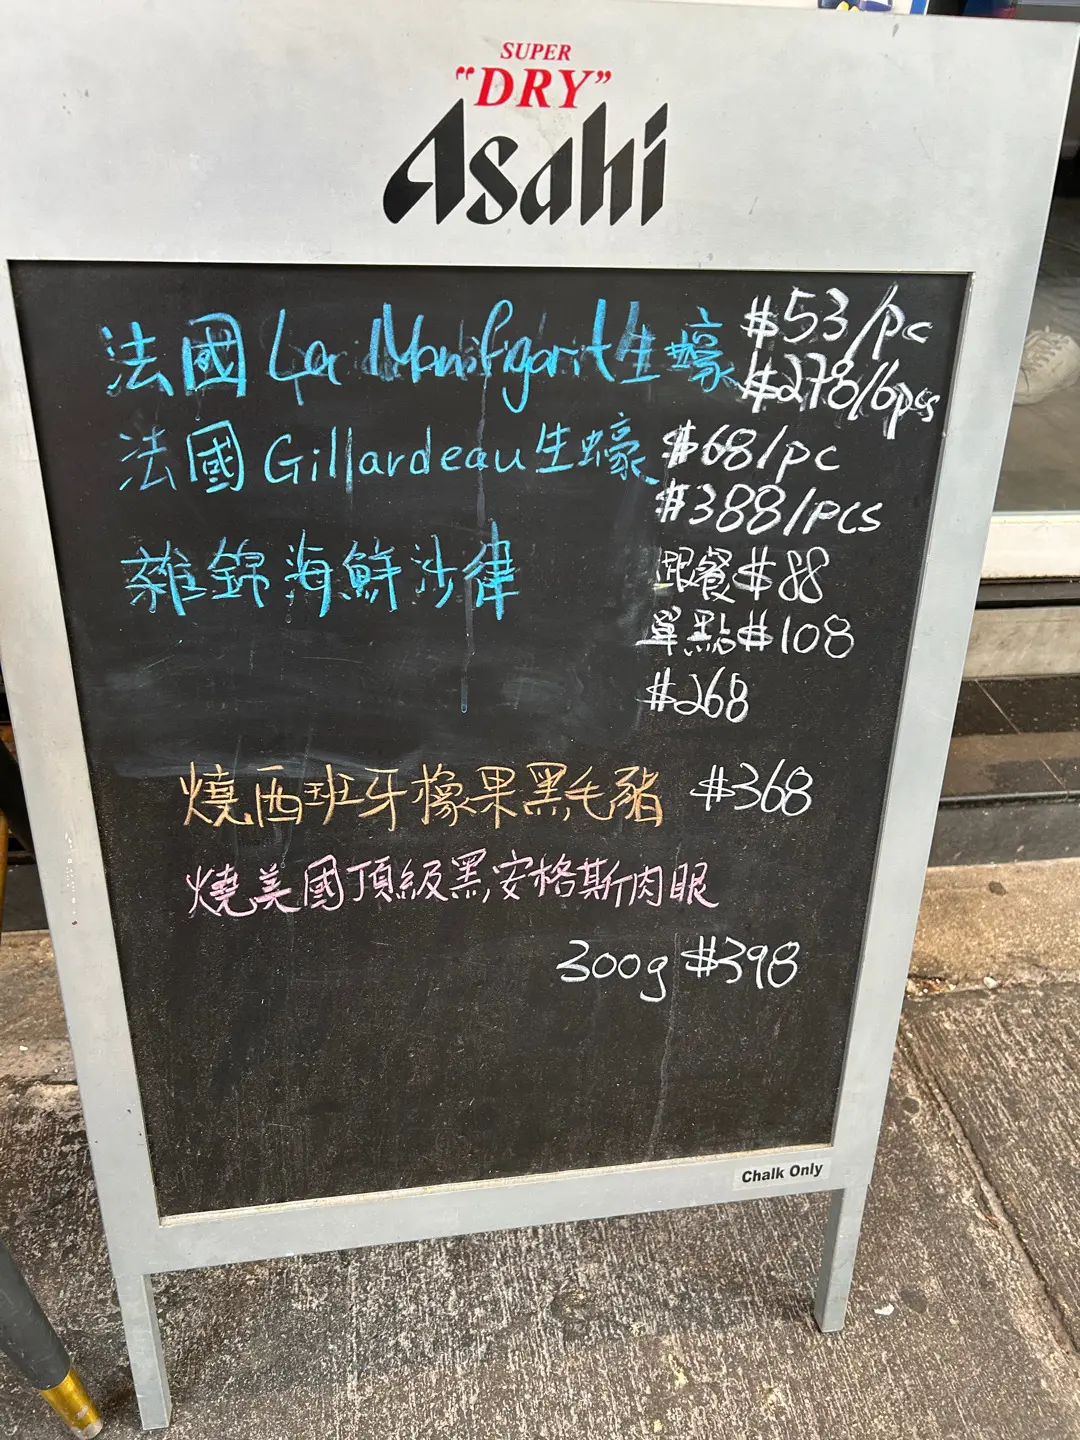 SUPER
"DRY"
Asahi
法國 La Monfigorit 生蠔 $53/pc
$278/6pcs
法國 Gillardeau 生蠔 $68/pc
$388/pcs
雜錦海鮮沙律 跟餐$88
單點$108
$268
燒西班牙橡果黑毛豬 $368
燒美國頂級黑安格斯肉眼
300g $398
Chalk Only